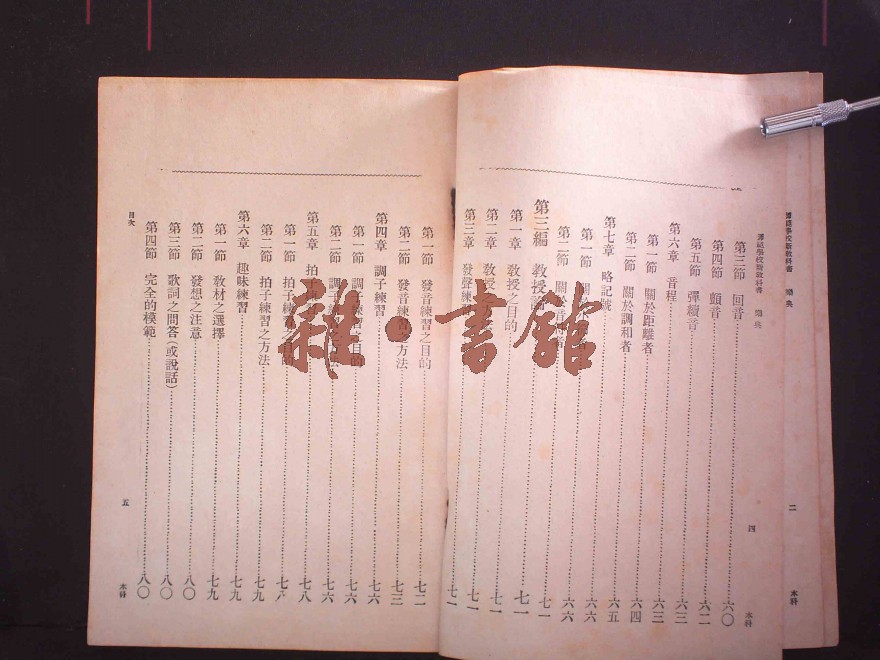 師範學校新教科書 樂典
二
本科
師範學校新教科書 樂典
四
本科
第三節 回音 六〇
第四節 顫音 六二
第五節 彈續音 六三
第六章 音程 六三
第一節 關於距離者 六四
第二節 關於調和者 六五
第七章 略記號 六六
第一節 六六
第二節 關於音 者 六六
第三編 教授 七一
第一章 教授之目的 七一
第二章 教授 七一
第三章 發聲練 七一
第一節 發音練習之目的 七二
第二節 發音練習 方法 七三
第四章 調子練習 七六
第一節 調子練習之目的 七六
第二節 調子練 七六
第五章 拍子練 七八
第一節 拍子練習 目的 七八
第二節 拍子練習之方法 七九
第六章 趣味練習 七九
第一節 教材之選擇 七九
第二節 發想之注意 八〇
第三節 歌詞之問答(或說話) 八〇
第四節 完全的模範 八〇
目次
五
本科
雜·書館